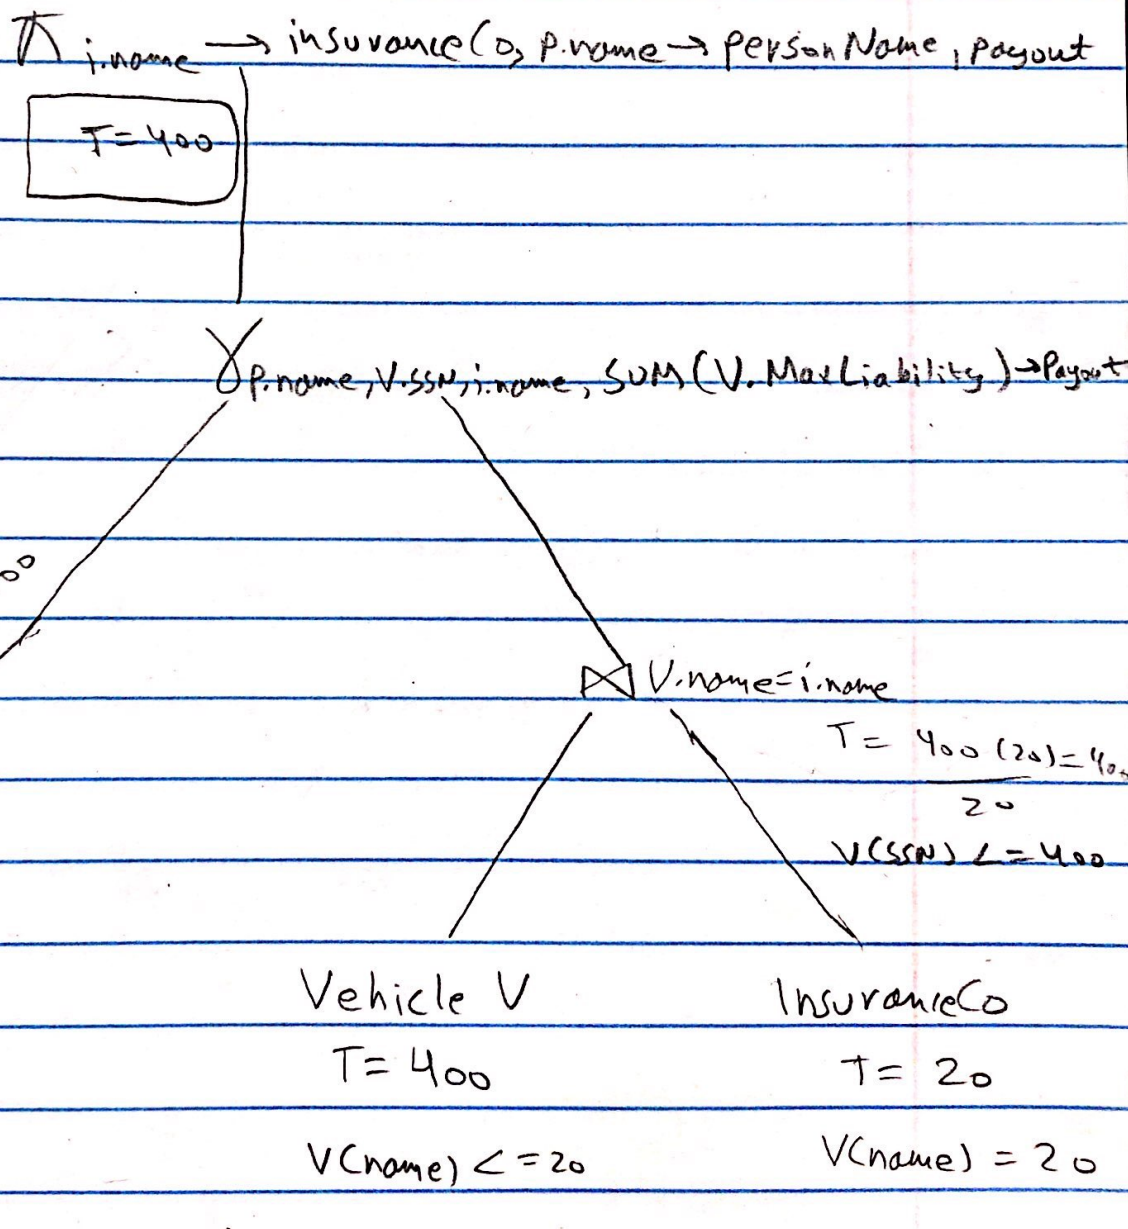 π i.name → insuranceCo, p.name → personName, payout
T=400
γ p.name, V.SSN, i.name, SUM(V.MaxLiability)→Payout
00
⋈ V.name=i.name
T= 400(20)=400
20
V(SSN) <=400
Vehicle V
InsuranceCo
T=400
T= 20
V(name) <=20
V(name) = 20